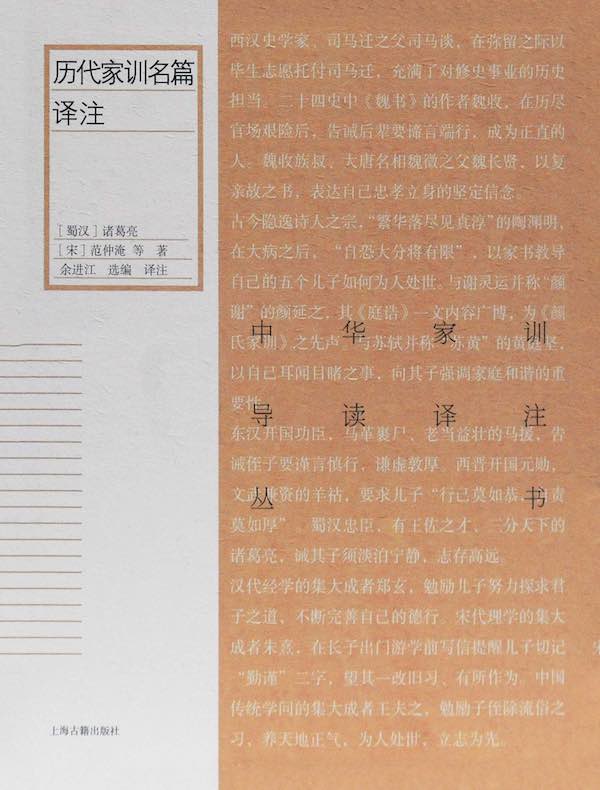 历代家训名篇
译注
［蜀汉］诸葛亮
［宋］范仲淹 等 著
余进江 选编 译注
上海古籍出版社
西汉史学家、司马迁之父司马谈，在弥留之际以
毕生志愿托付司马迁，充满了对修史事业的历史
担当。二十四史中《魏书》的作者魏收，在历尽
官场艰险后，告诫后辈要谛言端行，成为正直的
人。魏收族叔、大唐名相魏徵之父魏长贤，以复
亲故之书，表达自己忠孝立身的坚定信念。
古今隐逸诗人之宗，“繁华落尽见真淳”的陶渊明，
在大病之后，“自恐大分将有限”，以家书教导
自己的五个儿子如何为人处世。与谢灵运并称“颜
谢”的颜延之，其《庭诰》一文内容广博，为《颜
氏家训》之先声。与苏轼并称“苏黄”的黄庭坚，
以自己耳闻目睹之事，向其子强调家庭和谐的重
要性。
东汉开国功臣，马革裹尸、老当益壮的马援，告
诫侄子要谨言慎行，谦虚敦厚。西晋开国元勋，
文武兼资的羊祜，要求儿子“行己莫如恭，自责
莫如厚”。蜀汉忠臣，有王佐之才、三分天下的
诸葛亮，诫其子须淡泊宁静，志存高远。
汉代经学的集大成者郑玄，勉励儿子努力探求君
子之道，不断完善自己的德行。宋代理学的集大
成者朱熹，在长子出门游学前写信提醒儿子切记
“勤谨”二字，望其一改旧习、有所作为。中国
传统学问的集大成者王夫之，勉励子侄除流俗之
习，养天地正气，为人处世，立志为先。
中华家训
导读译注
丛书